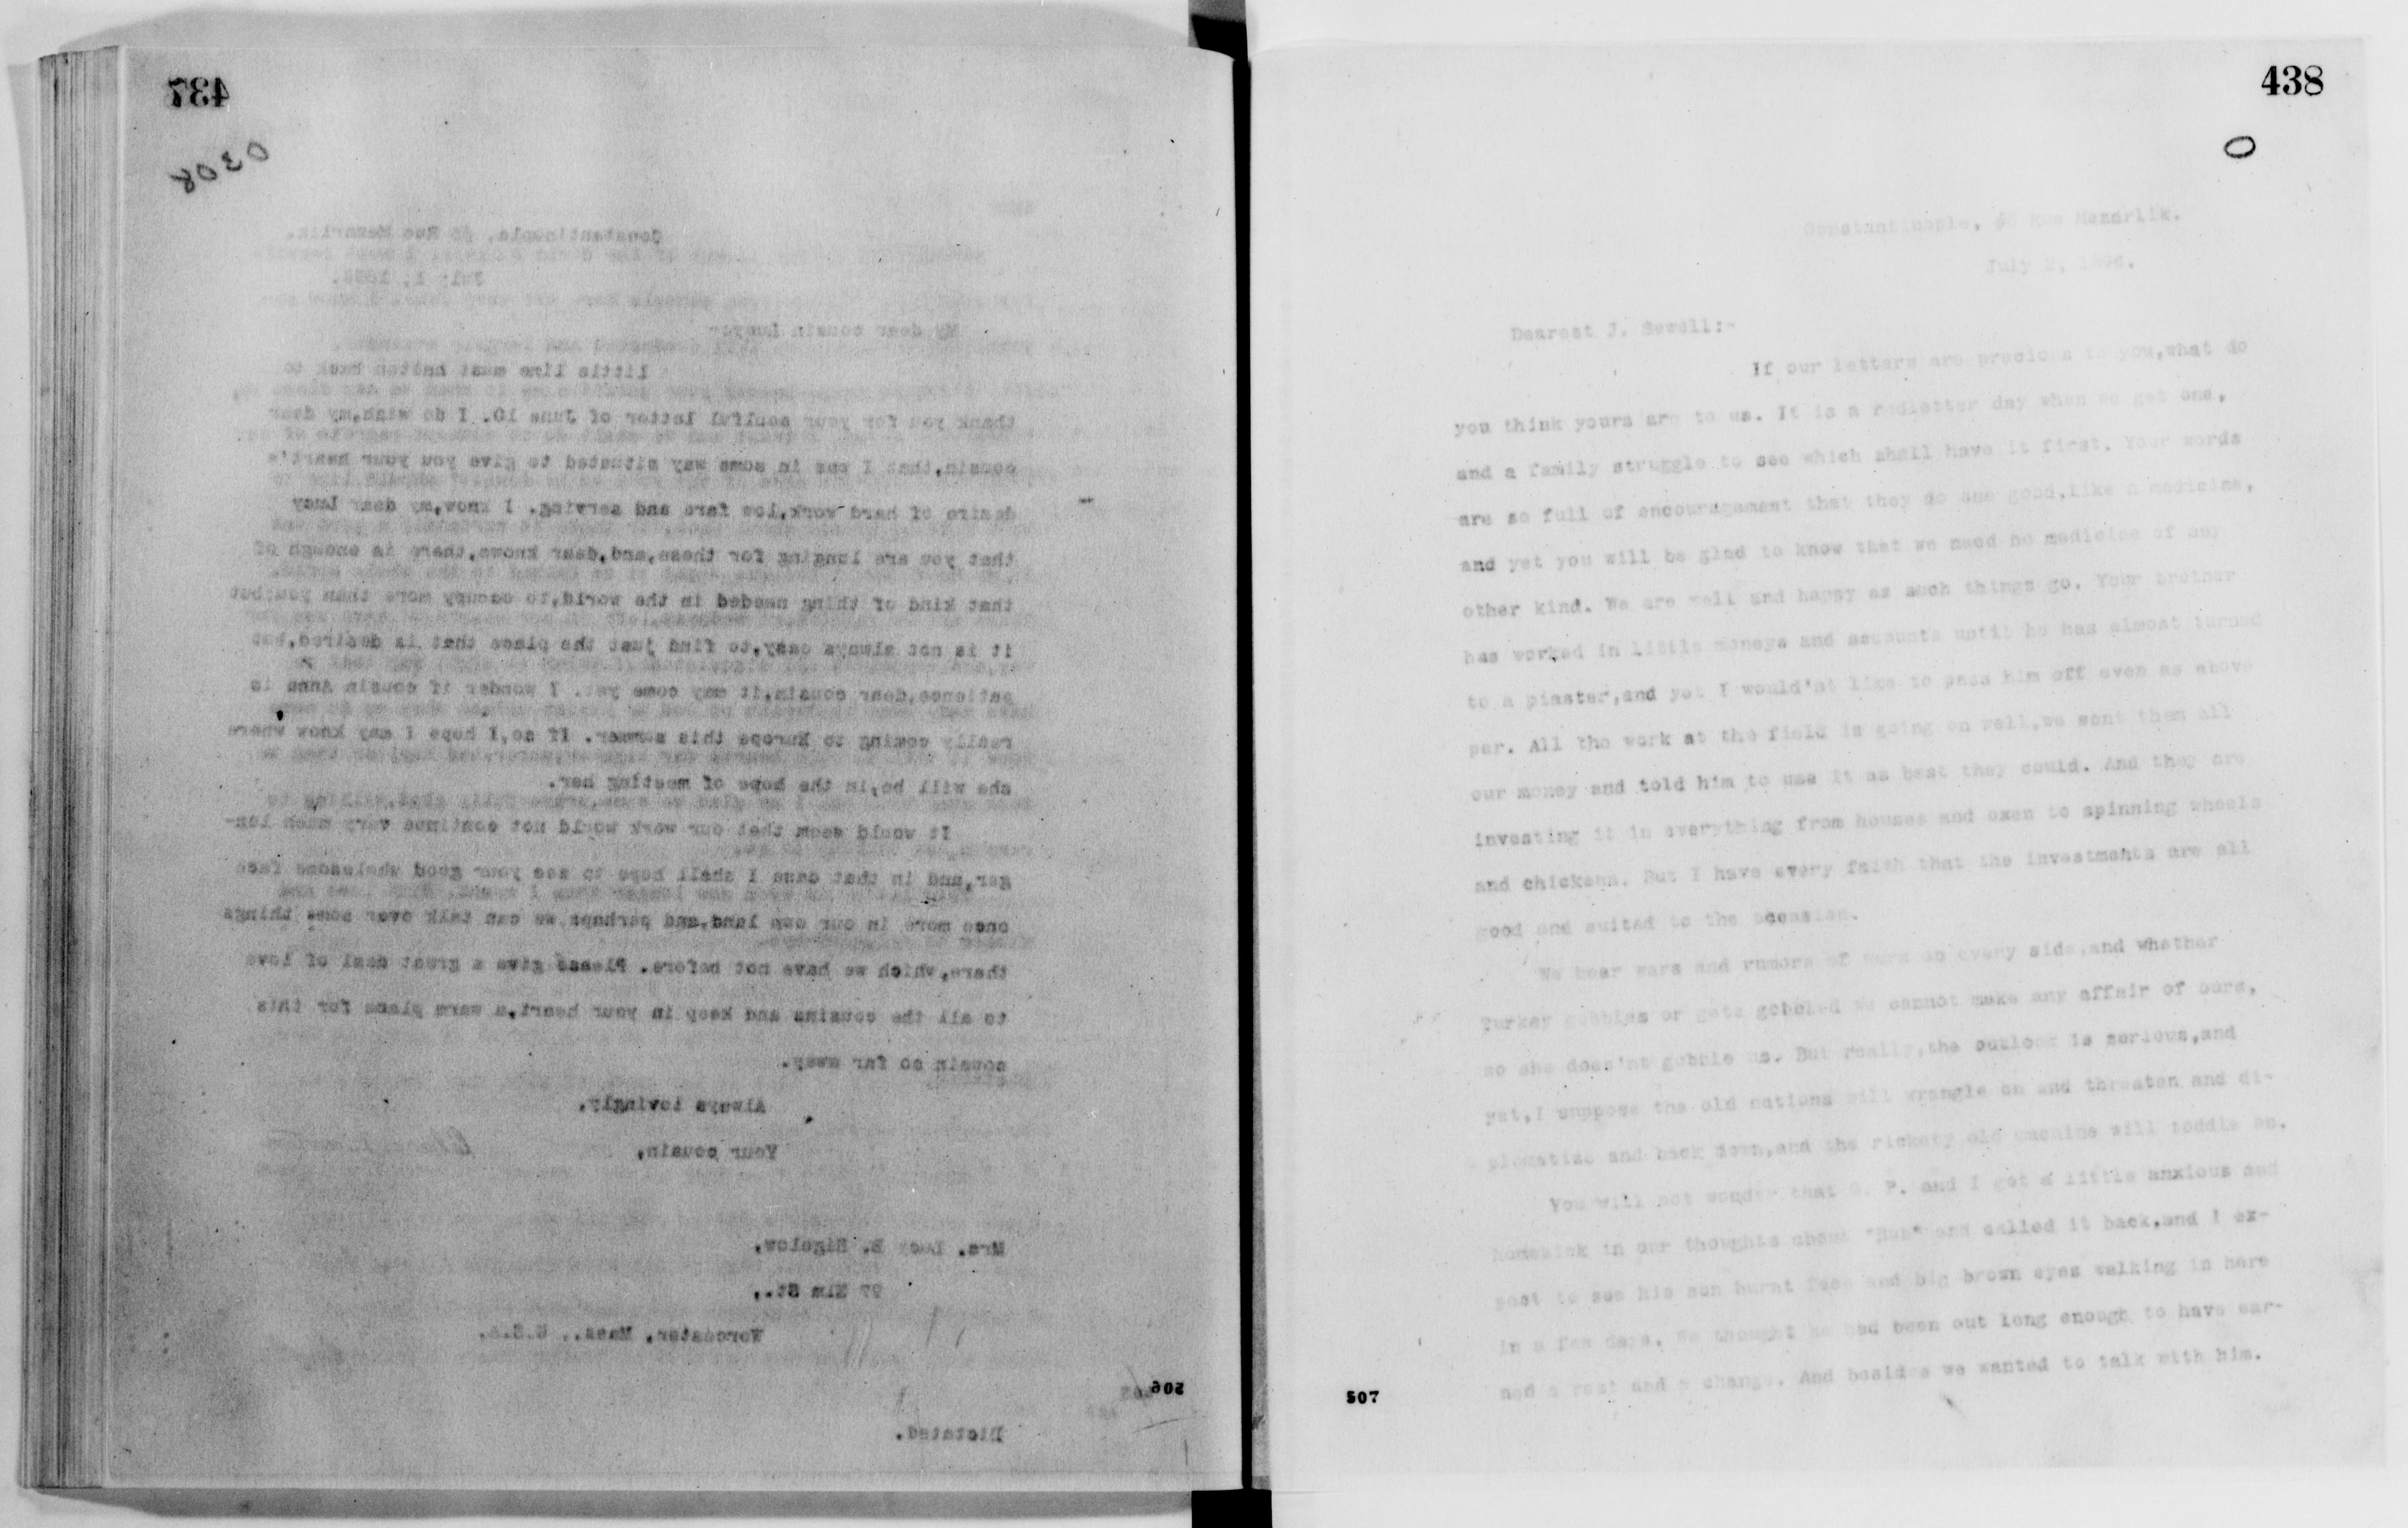 437
0308
Constantinople, Rue Mezarlik.
July 1, 1896.
My dear cousin Lucy:-
little line must hasten back to
thank you for your soulful letter of June 10. I do wish,my dear
cousin,that I was in some way situated to give you your heart's
desire of hard work,low fare and serving. I know,my dear Lucy
that you are longing for these,and,dear knows,there is enough of
that kind of thing needed in the world,to occupy more than you;but
it is not always easy,to find just the place that is desired,but
patience,dear cousin,it may come yet. I wonder if cousin Anna is
really coming to Europe this summer. If so,I hope I may know where
she will be,in the hope of meeting her.
It would seem that our work would not continue very much lon-
ger,and in that case I shall hope to see your good wholesome face
once more in our own land,and perhaps we can talk over some things
there,which we have not before. Please give a great deal of love
to all the cousins and keep in your heart,a warm place for this
cousin so far away.
Always lovingly,
Your cousin,
Mrs. Lucy B. Bigelow,
97 Elm St.,
Worcester, Mass., U.S.A.
506
Dictated.
438
0
Constantinople, Rue Mezarlik.
July 2, 1896.
Dearest J. Sewell:-
If our letters are precious to you,what do
you think yours are to us. It is a redletter day when we get one,
and a family struggle to see which shall have it first. Your words
are so full of encouragement that they do one good,like a medicine,
and yet you will be glad to know that we need no medicine of any
other kind. We are well and happy as such things go. Your brother
has worked in little moneys and accounts until he has almost turned
to a piaster,and yet I would'nt like to pass him off even as above
par. All the work at the field is going on well,we sent them all
our money and told him to use it as best they could. And they are
investing it in everything from houses and oxen to spinning wheels
and chickens. But I have every faith that the investments are all
good and suited to the occasion.
We hear wars and rumors of wars on every side,and whether
Turkey gobbles or gets gobbled we cannot make any affair of ours,
so she does'nt gobble us. But really,the outlook is serious,and
yet,I suppose the old nations will wrangle on and threaten and di-
plomatize and back down,and the rickety old machine will toddle on.
You will not wonder that G. P. and I got a little anxious and
homesick in our thoughts about "Hub" and called it back,and I ex-
pect to see his sun burnt face and big brown eyes walking in here
in a few days. We thought he had been out long enough to have ear-
ned a rest and a change. And besides we wanted to talk with him.
507